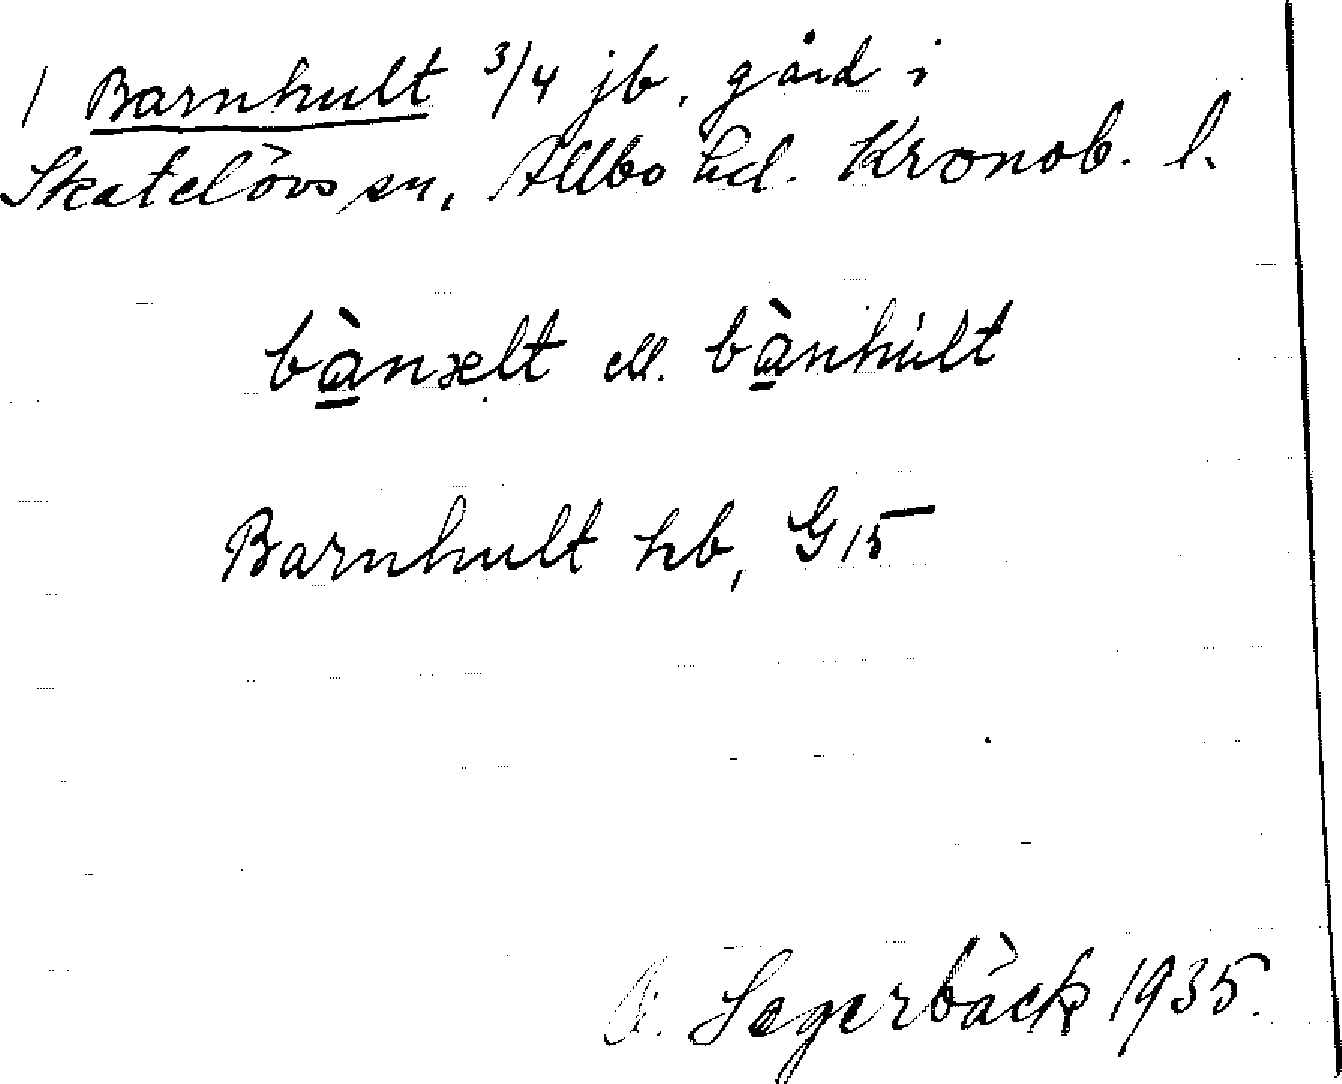 1 Barnhult 3/4 jb. gård i
Skatelövs sn, Allbo hd. Kronob. l.
bànælt ell. bànhúlt
Barnhult hb, G15
B. Segerbäck 1935.